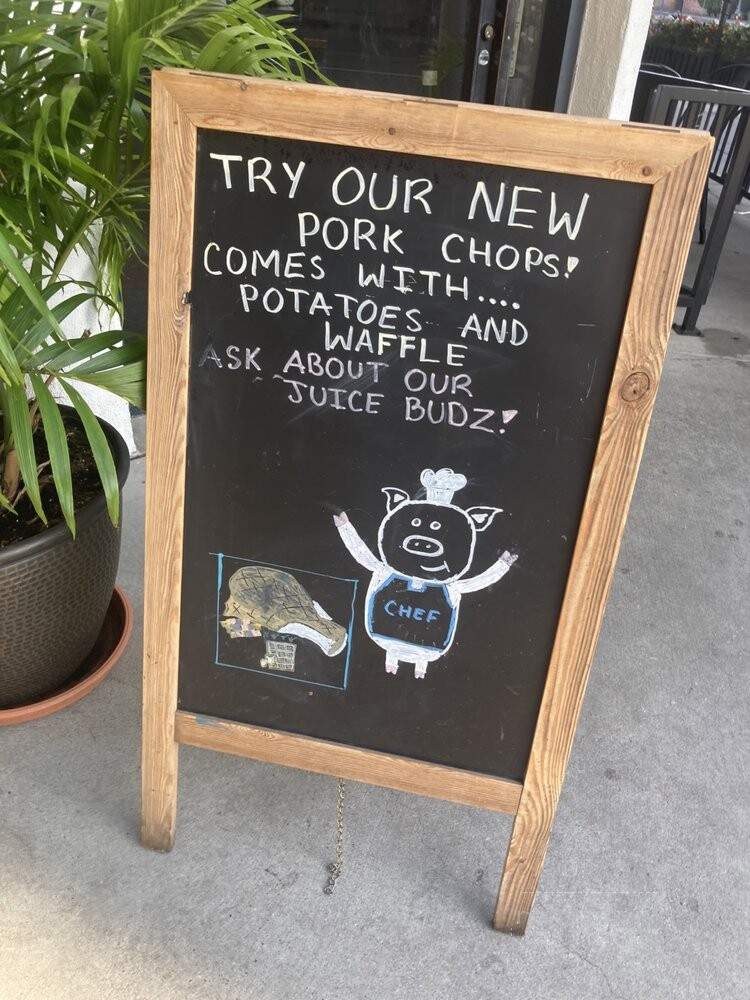 TRY OUR NEW
PORK CHOPS!
COMES WITH....
POTATOES AND
WAFFLE
ASK ABOUT OUR
JUICE BUDZ!
CHEF